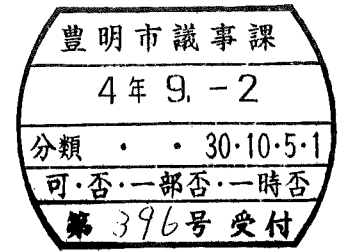 豊明市議事課
4年9.-2
分類 ・ ・ 30・10・5・1
可・否・一部否・一時否
第396号 受付